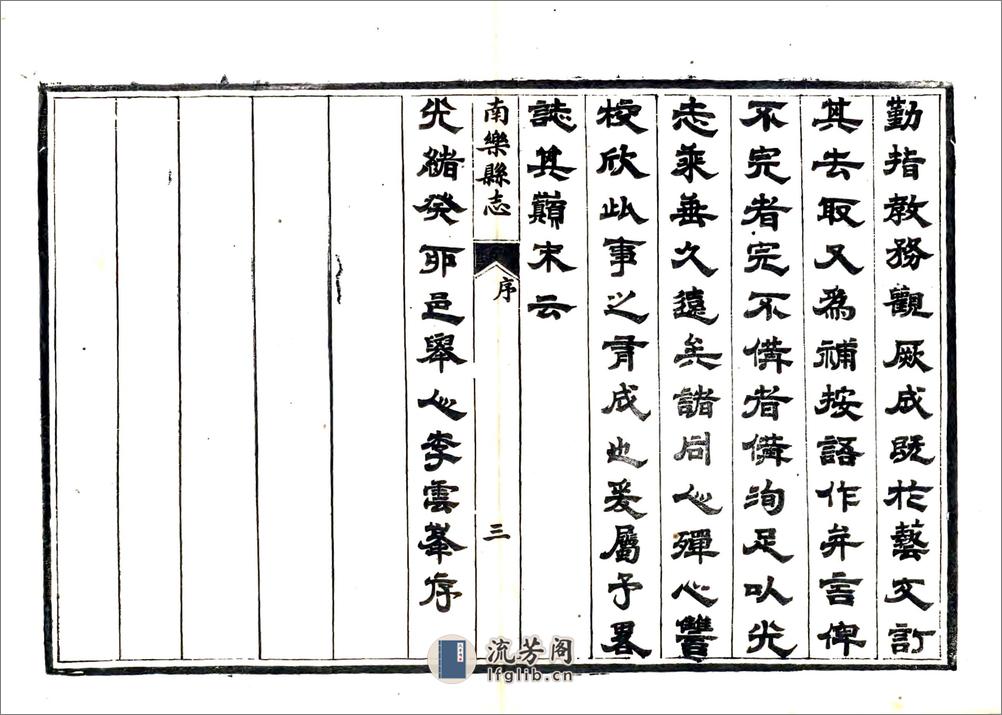 勤指教務觀厥成既於藝文訂
其去取又為補按語作弁言俾
不完者完不備者備洵足以光
志乘垂久遠矣諸同人殫心讐
校欣此事之有成也爰屬予畧
誌其巔末云
南樂縣志
序
三
光緒癸卯邑舉人李雲峯序
流芳阁
lfglib.cn